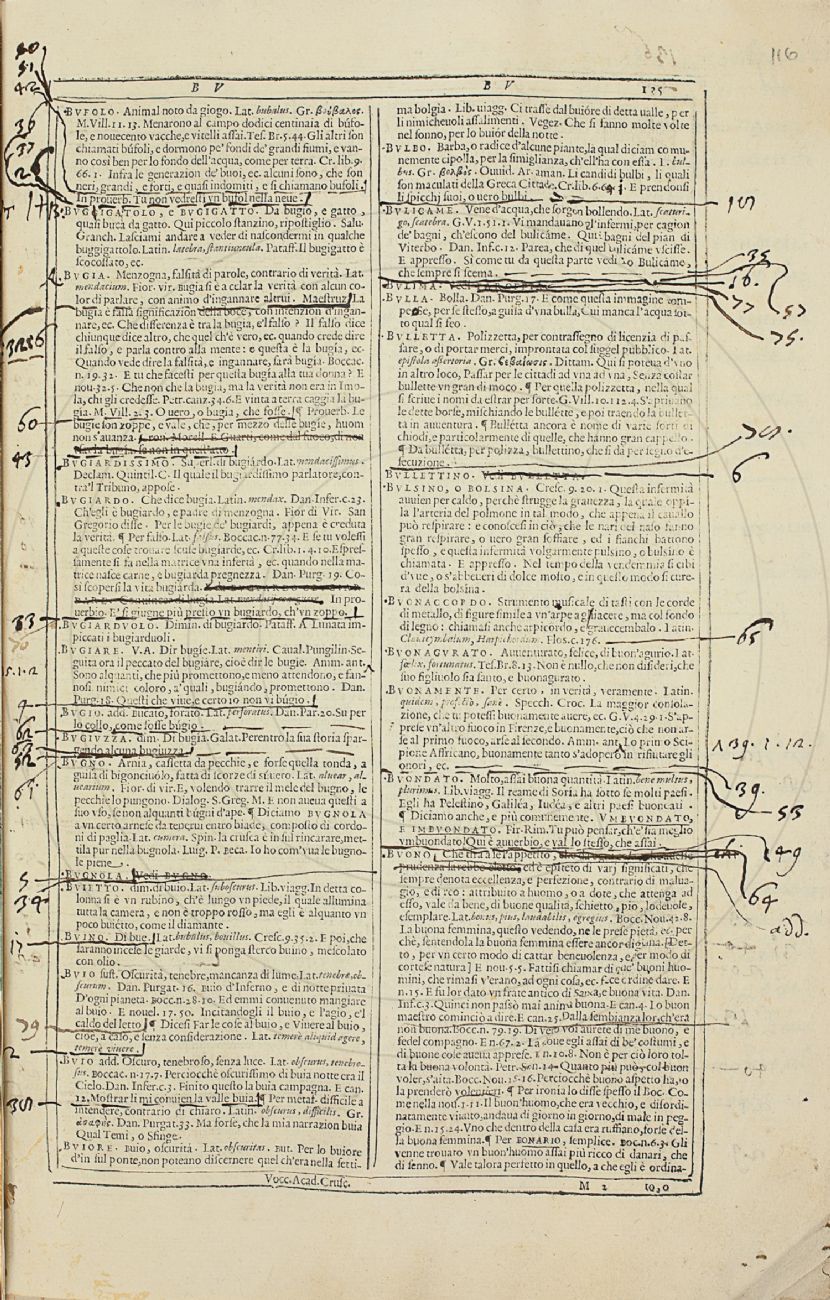 116
50
51
42
36
37
2
60
45
33
5.1.2
9
62
63
52
5
34
17
79
2
305
101
35
16.
77
57
75.
6
65
139.1.12.
39.
53
49
64
add.
B V
BVFOLO. Animal noto da giogo. Lat. bubalus. Gr. βούβαλος.
M. Vill. 11. 13. Menarono al campo dodici centinaia di búfo-
le, e nouecento vacche, e vitelli assai. Tes. Br. 5. 44. Gli altri son
chiamati búfoli, e dormono pe' fondi de' grandi fiumi, e van-
no così ben per lo fondo dell'acqua, come per terra. Cr. lib. 9.
66. 1. Infra le generazion de' buoi, ec. alcuni sono, che son
neri, grandi, e forti, e quasi indomiti, e si chiamano bufoli.
In prouerb. Tu non vedresti vn bufol nella neue.
BVGIGATOLO, e BVGIGATTO. Da bugio, e gatto,
quasi buca da gatto. Qui piccolo stanzino, ripostiglio. Salu.
Granch. Lasciami andare a veder di nascondermi in qualche
buggigattolo. Latin. latebra, stantiuncula. Pataff. Il bugigatto è
scocollato, ec.
BVGIA. Menzogna, falsità di parole, contrario di verità. Lat.
mendacium. Fior. vir. Bugia si è a celar la verità con alcun co-
lor di parlare, con animo d'ingannare altrui. Maestruz. La
bugia è falsa significazion della boce, con intenzion d'ingan-
nare, ec. Che differenza è tra la bugia, e'l falso? Il falso dice
chiunque dice altro, che quel ch'è vero, ec. quando crede dire
il falso, e parla contro alla mente: e questa è la bugia, ec.
Quando vede dire la falsità, e ingannare, sarà bugia. Boccac.
n. 19. 32. E tu che facesti per questa bugia alla tua donna? E
nou. 32. 5. Che non che la bugia, ma la verità non era in Imo-
la, chi gli credesse. Petr. canz. 34. 6. E vinta a terra caggia la bu-
gia. M. Vill. 2. 3. O uero, o bugia, che fosse. ¶ Prouerb. Le
bugie son zoppe, e vale, che, per mezzo delle bugie, huom
non s'auanza.
BVGIARDISSIMO. Superl. di bugiardo. Lat. mendacissimus.
Declam. Quintil. C. Il quale il bugiardissimo parlatore, con-
tra'l Tribuno, appose.
BVGIARDO. Che dice bugia. Latin. mendax. Dan. Infer. c. 23.
Ch'egli è bugiardo, e padre di menzogna. Fior di Vir. San
Gregorio disse. Per le bugie de' bugiardi, appena è creduta
la verità. ¶ Per falso. Lat. falsus. Boccac. n. 77. 34. E se tu volessi
a queste cose trouare scuse bugiarde, ec. Cr. lib. 1. 4. 10. Espres-
samente si fa nella matrice vna infertà, ec. quando nella ma-
trice nasce carne, e bugiarda pregnezza. Dan. Purg. 19. Co-
sì scopersi la vita bugiarda. In pro-
uerbio. E' si giugne più presto vn bugiardo, ch'vn zoppo.
BVGIARDVOLO. Dimin. di bugiardo. Pataff. A Lunata im-
piccati i bugiarduoli.
BVGIARE. V.A. Dir bugie. Lat. mentiri. Caual. Pungilin. Se-
guita ora il peccato del bugiáre, cioè dir le bugie. Amm. ant.
Sono alquanti, che più promettono, e meno attendono, e fan-
nosi nimici coloro, a' quali, bugiándo, promettono. Dan.
Purg. 18. Questi che viue, e certo io non vi búgio.
BVGIO. add. Bucato, forato. Lat. perforatus. Dan. Par. 20. Su per
lo collo, come fosse búgio.
BVGIVZZA. dim. Di bugia. Galat. Perentro la sua storia spar-
gendo alcuna bugiuzza.
BVGNO. Arnia, cassetta da pecchie, e forse quella tonda, a
guisa di bigonciuólo, fatta di scorze di súuero. Lat. aluear, al-
uearium. Fior. di vir. E, volendo trarre il mele del bugno, le
pecchie lo pungono. Dialog. S. Greg. M. E non aueua questi a
suo vso, se non alquanti búgni d'ape. ¶ Diciamo BVGNOLA
a vn certo arnese da tenerui entro biade, composto di cordo-
ni di paglia. Lat. cumera. Spin. la crusca è in sul rincarare, met-
tila pur nella bugnola. Luig. P. Beca. Io ho com'vua le bugno-
le piene.
BVGNOLA. Vedi BVGNO.
BVIETTO. dim. di buio. Lat. suboscurus. Lib. viagg. In detta co-
lonna si è vn rubino, ch'è lungo vn piede, il quale allumina
tutta la camera, e non è troppo rosso, ma egli è alquanto vn
poco buiétto, come il diamante.
BVINO. Di bue. Lat. bubalus, bouillus. Cresc. 9. 35. 2. E poi, che
saranno incese le giarde, vi si ponga sterco buino, mescolato
con olio.
BVIO sust. Oscurità, tenebre, mancanza di lume. Lat. tenebrae, ob-
scurum. Dan. Purgat. 16. Buio d'Inferno, e di notte priuata
D'ogni pianeta. Bocc. n. 28. 10. Ed emmi conuenuto mangiare
al buio. E nouel. 17. 50. Incitandogli il buio, e l'agio, e'l
caldo del letto. ¶ Dicesi Far le cose al buio, e Viuere al buio,
cioè, a caso, e senza considerazione. Lat. temerè aliquid agere,
temerè viuere.
BVIO add. Oscuro, tenebroso, senza luce. Lat. obscurus, tenebro-
sus. Boccac. n. 17. 7. Perciocchè oscurissimo di buia notte era il
Cielo. Dan. Infer. c. 3. Finito questo la buia campagna. E can.
12. Mostrarli mi conuien la valle buia. ¶ Per metaf. difficile a
intendere, contrario di chiaro. Latin. obscurus, difficilis. Gr.
Dan. Purgat. 33. Ma forse, che la mia narrazion buia
Qual Temi, o Sfinge.
BVIORE. Buio, oscurità. Lat. obscuritas. But. Per lo buiore
d'in sul ponte, non poteano discernere quel ch'era nella setti-
Vocc. Acad. Crusc.
B V 135
ma bolgia. Lib. uiagg. Ci trasse dal buióre di detta ualle, per
li nimicheuoli assalimenti. Vegez. Che si fanno molte volte
nel sonno, per lo buiór della notte.
BVLBO. Barba, o radice d'alcune piante, la qual diciam comu-
nemente cipolla, per la simiglianza, ch'ell'ha con essa. L. bul-
bus. Gr. βολβός. Ouuid. Ar. aman. Li candidi bulbi, li quali
son maculati della Greca Cittade. Cr. lib. 6. 64. 1. E prendonsi
li spicchi suoi, o uero bulbi.
BVLICAME. Vene d'acqua, che sorgon bollendo. Lat. scaturi-
go, scatebra. G. V. 1. 51. 1. Vi mandauano gl'infermi, per cagion
de' bagni, ch'escono del bulicáme. Qui: bagni del pian di
Viterbo. Dan. Inf. c. 12. Parea, che di quel bulicáme vscisse.
E appresso. Sì come tu da questa parte vedi Lo Bulicame,
che sempre si scema.
BVLIMA.
BVLLA. Bolla. Dan. Purg. 17. E come questa immagine rom-
peo se, per se stesso, a guisa d'vna bulla, Cui manca l'acqua sot-
to qual si feo.
BVLLETTA. Polizzetta, per contrassegno di licenzia di pas-
sare, o di portar merci, improntata col suggel pubblico. Lat.
epistola assertoria. Gr. Dittam. Qui si poteua d'vno
in altro loco, Passar per le cittadi ad vna ad vna, Senza costar
bullette vn gran di moco. ¶ Per quella polizzetta, nella qual
si scriue i nomi da estrar per sorte. G. Vill. 10. 112. 4. S'apriuano
le dette borse, mischiando le bulléttè, e poi traendo la bullet-
ta in auuentura. ¶ Bullétta ancora è nome di varie sorti di
chiodi, e particolarmente di quelle, che hánno gran cappello.
¶ Da bulletta, per polizza, bullettino, che si dà per segno d'e-
secuzione.
BVLLETTINO. Vedi BVLLETTA.
BVLSINO, O BOLSINA. Cresc. 9. 20. 1. Questa infermità
auuien per caldo, perchè strugge la grassezza, la quale oppi-
la l'arteria del polmone in tal modo, che appena il cauallo
può respirare: e conoscesi in ciò, che le nari del naso fanno
gran respirare, o uero gran soffiare, ed i fianchi battono
spesso, e questa infermità volgarmente pulsino, o bulsino è
chiamata. E appresso. Nel tempo della vendemmia si cibi
d'vue, o s'abbeueri di dolce mosto, e in questo modo si cure-
ra della bolsina.
BVONACCORDO. Strumento musicale di tasti con le corde
di metallo, di figure simile a vn'arpe a ghiacere, ma col fondo
di legno: chiamasi anche arpicordo, e grauecembalo. Latin.
Clauicymbalum, Harpichordum. Hos. c. 176.
BVONAGVRATO. Auuenturato, felice, di buon'agurio. Lat.
foelix, fortunatus. Tes. Br. 8. 13. Non è nullo, che non disideri, che
suo figliuolo sia santo, e buonagurato.
BVONAMENTE. Per certo, in verità, veramente. Latin.
quidem, profectò, sanè. Specch. Croc. La maggior consola-
zione, che tu potessi buonamente auere, ec. G. V. 4. 29. 1. S'ap-
prese vn'altro fuoco in Firenze, e buonamente, ciò che non ar-
se al primo fuoco, arse al secondo. Amm. ant. Lo primo Sci-
pione Affricano, buonamente tanto s'adoperò in rifiutare gli
onori, ec.
BVONDATO. Molto, assai buona quantità. Latin. bene multus,
plurimus. Lib. viagg. Il reame di Soria ha sotto se molti paesi.
Egli ha Pelestino, Galiléa, Iudéa, e altri paesi buondati.
¶ Diciamo anche, e più comunemente. VMBVONDATO,
E IMBVONDATO. Fir. Rim. Tu può pensar, ch'e' sia meglio
vmbuondato. Qui è auuerbio, e val lo stesso, che assai.
BVONO. Che trà a se l'appetito,
ed è epiteto di varj significati, che
sempre denota eccellenza, e perfezione, contrario di malua-
gio, e di reo: attribuito a huomo, o a dote, che attenga ad
esso, vale da bene, di buone qualità, schietto, pio, lodeuole,
esemplare. Lat. bonus, pius, laudabilis, egregius. Bocc. Nou. 42. 8.
La buona femmina, questo vedendo, ne le prese pietà, ec. per
chè, sentendola buona femmina essere ancor digiuna. [Det-
to, per vn certo modo di cattar beneuolenza, e per modo di
cortese natura] E nou. 5. 5. Fattisi chiamar di que' buoni huo-
mini, che rimasi v'erano, ad ogni cosa, ec. fece ordine dare. E
n. 15. E fu lor dato vn frate antico di Santa, e buona vita. Dan.
Inf. c. 3. Quinci non passò mai anima buona. E can. 4. Lo buon
maestro cominciò a dire. E can. 25. Dalla sembianza lor, ch'era
non buona. Bocc. n. 79. 19. Di vero voi aurete di me buono, e
fedel compagno. E n. 67. 2. Là oue egli assai di be' costumi, e
di buone cose aueua apprese. E n. 10. 8. Non è per ciò loro tol-
ta la buona volontà. Petr. Son. 14. Quanto più può col buon
voler, s'aita. Bocc. Nou. 15. 16. Perciocchè buono aspetto ha, o
la prenderò volentieri. ¶ Per ironia lo disse spesso il Boc. Co-
me nella nou. 1. 11. Il buon'huomo, che era vecchio, e disordi-
natamente viuuto, andaua di giorno in giorno, di male in peg-
gio. E n. 15. 24. Vno che dentro della casa era ruffiano, forse del-
la buona femmina. ¶ Per BONARIO, semplice. Boc. n. 6. 3. Gli
venne trouato vn buon'huomo assai più ricco di danari, che
di senno. ¶ Vale talora perfetto in quello, a che egli è ordina-
M 2 to, o